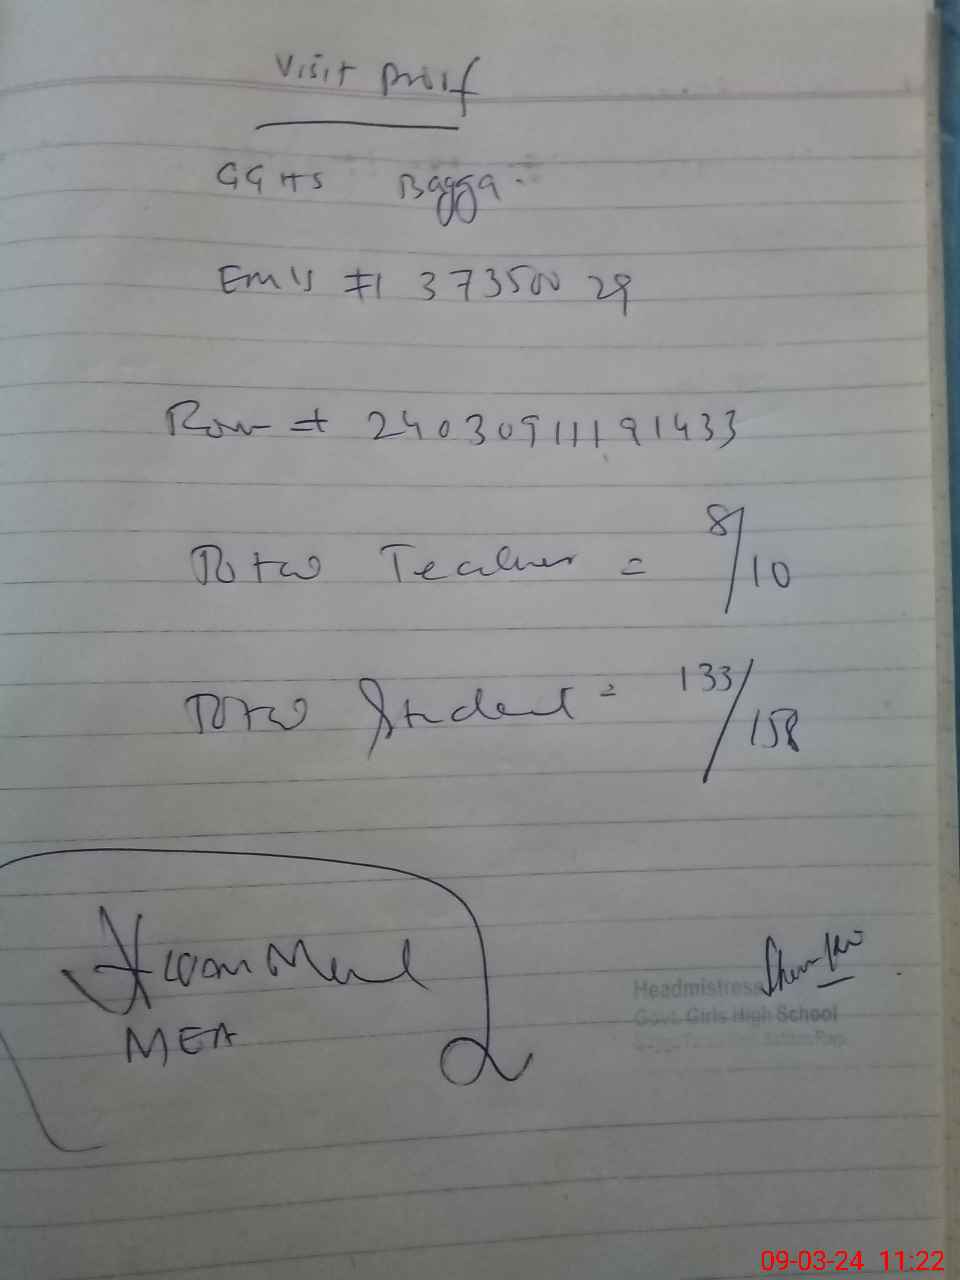 Visit Proof
GGHS Bagga
Emis # 37350029
Row # 24030911191433
Total Teacher = 8/10
Total Student = 133/158
MEA
Headmistress
Govt. Girls High School
09-03-24 11:22